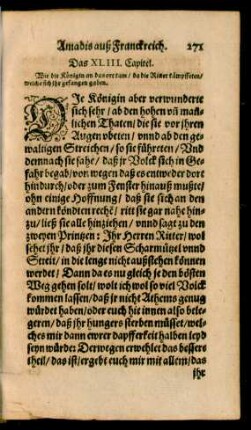 Amadis auß Franckreich. 271
Das XLIII. Capitel.
Wie die Königin an das ort kam / da die Ritter kämpfften /
welche sich jhr gefangen gaben.
DJe Königin aber verwunderte
sich sehr / ab den hohen vñ mañ-
lichen Thaten / die sie vor jhren
Augen vbeten / vnnd ab den ge-
waltigen Streichen / so sie führeten / Vnd
dennach sie sahe / daß jr Volck sich in Ge-
fahr begab / vor wegen daß es entweder dort
hindurch / oder zum Fenster hinauß mußte /
ohn einige Hoffnung / daß sie sich an den
andern köndten rechē / ritt sie gar nahe hin-
zu / ließ sie alle hinziehen / vnnd sagt zu den
zweyen Printzen: Jhr Herren Ritter / wol
sehet jhr / daß jhr diesen Scharmützel vnnd
Streit / in die lenge nicht außstehen können
werdet / Dann da es nu gleich je den bösten
Weg gehen solt / wolt ich wol so viel Volck
kommen lassen / daß jr nicht Athems genug
würdet haben / oder euch hie innen also bele-
gern / daß jhr hungers sterben müsset / wel-
ches mir dann ewrer dapfferkeit halben leyd
seyn würde: Derwegen erwehlet das bessere
theil / das ist / ergebt euch mir mit allem / das
jhr